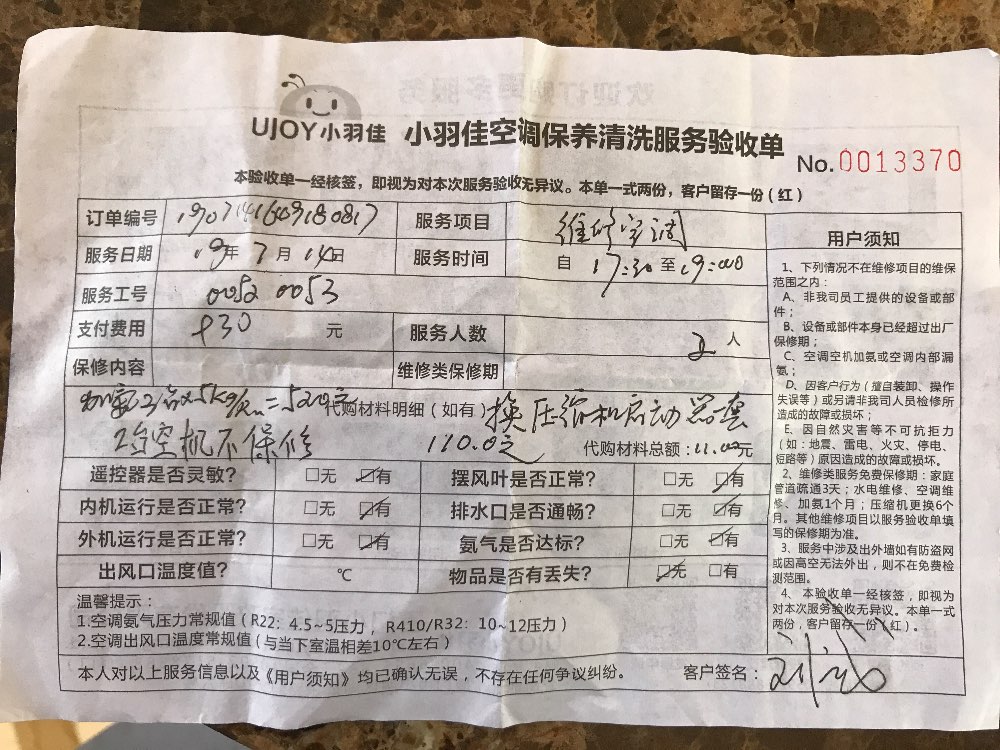 UJOY小羽佳 小羽佳空调保养清洗服务验收单
No.0013370
本验收单一经核签，即视为对本次服务验收无异议。本单一式两份，客户留存一份（红）
订单编号 服务项目 维修空调
服务日期 19年7月14日 服务时间 自 17:30至19:00
服务工号 0052 0053
支付费用 元 服务人数 2人
保修内容 维修类保修期
代购材料明细（如有）换压缩机启动器壹
空机不保修 110.0元 代购材料总额：元
遥控器是否灵敏？ □无 ☑有 摆风叶是否正常？ □无 ☑有
内机运行是否正常？ □无 ☑有 排水口是否通畅？ □无 ☑有
外机运行是否正常？ □无 ☑有 氨气是否达标？ □无 ☑有
出风口温度值？ ℃ 物品是否有丢失？ ☑无 □有
温馨提示：
1.空调氨气压力常规值（R22：4.5~5压力，R410/R32：10~12压力）
2.空调出风口温度常规值（与当下室温相差10℃左右）
本人对以上服务信息以及《用户须知》均已确认无误，不存在任何争议纠纷。 客户签名：
用户须知
1、下列情况不在维修项目的维保
范围之内：
A、非我司员工提供的设备或部
件；
B、设备或部件本身已经超过出厂
保修期；
C、空调空机加氨或空调内部漏
氨；
D、因客户行为（擅自装卸、操作
失误等）或另请非我司人员检修所
造成的故障或损坏；
E、因自然灾害等不可抗拒力
（如：地震、雷电、火灾、停电、
短路等）原因造成的故障或损坏。
2、维修类服务免费保修期：家庭
管道疏通3天；水电维修、空调维
修、加氨1个月；压缩机更换6个
月。其他维修项目以服务验收单填
写的保修期为准。
3、服务中涉及出外墙如有防盗网
或因高空无法外出，则不在免费检
测范围。
4、本验收单一经核签，即视为
对本次服务验收无异议。本单一式
两份，客户留存一份（红）。